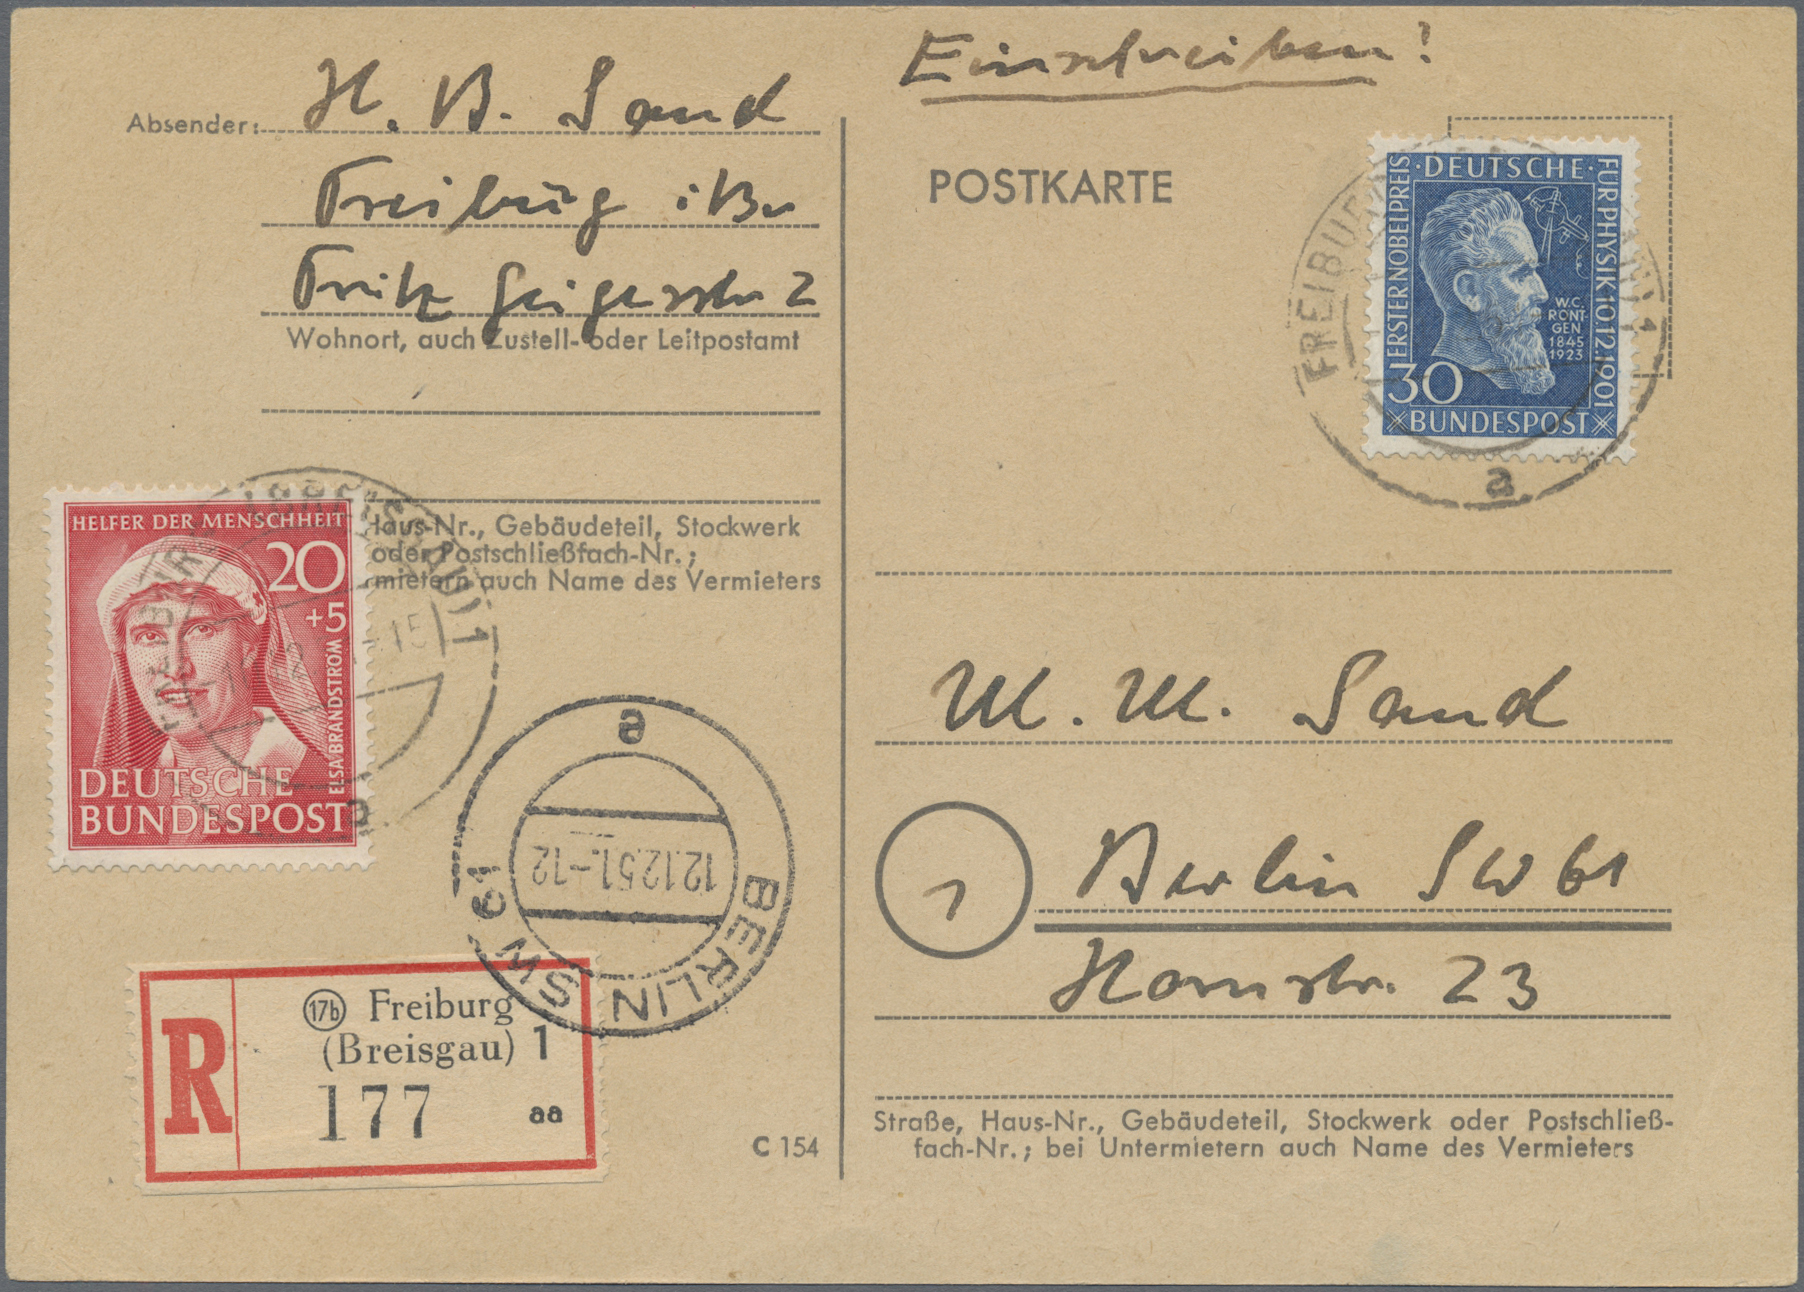 Einschreiben!
Absender: H. B. Sand
Freiburg i Br
Fritz Geigesstr 2
Wohnort, auch Zustell- oder Leitpostamt
Haus-Nr., Gebäudeteil, Stockwerk
oder Postschließfach-Nr.;
mietern auch Name des Vermieters
HELFER DER MENSCHHEIT
20
+5
ELSA BRANDSTRÖM
DEUTSCHE
BUNDESPOST
a
12.12.51.-12
BERLIN SW 61
R
17b Freiburg
(Breisgau) 1
177 aa
C 154
POSTKARTE
ERSTER NOBELPREIS
DEUTSCHE
FÜR PHYSIK 10.12.1901
W.C.
RÖNT-
GEN
1845
1923
30
BUNDESPOST
a
M. M. Sand
1 Berlin SW 61
Hornstr. 23
Straße, Haus-Nr., Gebäudeteil, Stockwerk oder Postschließ-
fach-Nr.; bei Untermietern auch Name des Vermieters